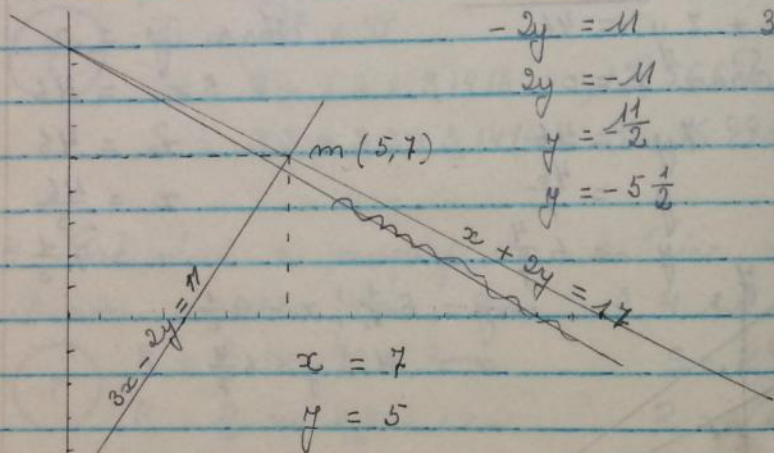 - 2y = 11 3
2y = -11
y = -11/2
y = -5 1/2
m (5,7)
x + 2y = 17
3x - 2y = 11
x = 7
y = 5